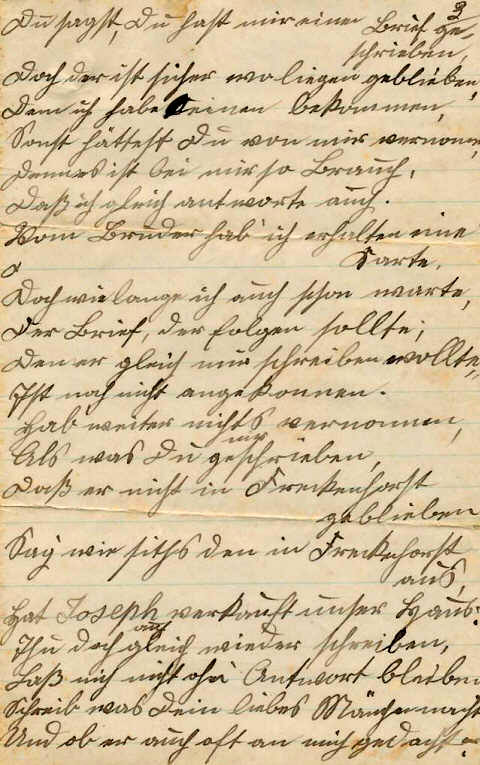 3
Du sagst, Du hast mir einen Brief ge-
schrieben,
Doch der ist sicher wo liegen geblieben,
Denn ich habe keinen bekommen,
Sonst hättest Du von mir vernomm
Denn es ist bei mir so Brauch,
Daß ich gleich antworte auch.
Vom Bruder hab' ich erhalten eine
Karte.
Doch wie lange ich auch schon warte,
Der Brief, der folgen sollte,
Den er gleich mir schreiben wollte,
Ist noch nicht angekommen.
Hab weiter nichts vernommen,
Als was Du mir geschrieben,
Daß er nicht in Freckenhorst
geblieben
Sag' wie siths den in Freckenhorst
aus,
Hat Joseph verkauft unser Haus?
Thu doch auch gleich wieder schreiben,
Laß mich nicht ohn' Antwort bleiben
Schreib was Dein liebes Mänche macht
Und ob er auch oft an mich gedacht